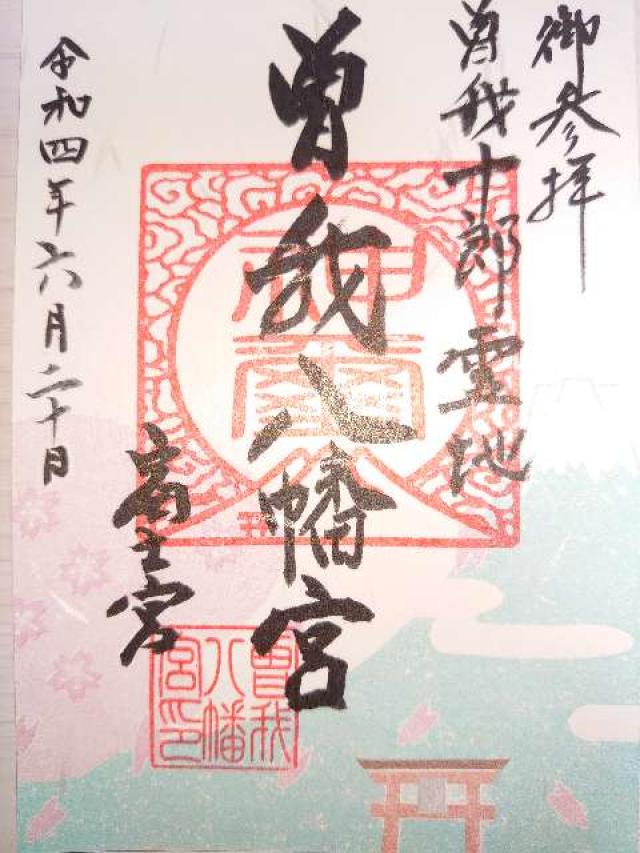 御参拝
曽我十郎霊地
曽我八幡宮
富士宮
令和四年六月二十日
曽我
八幡
宮印